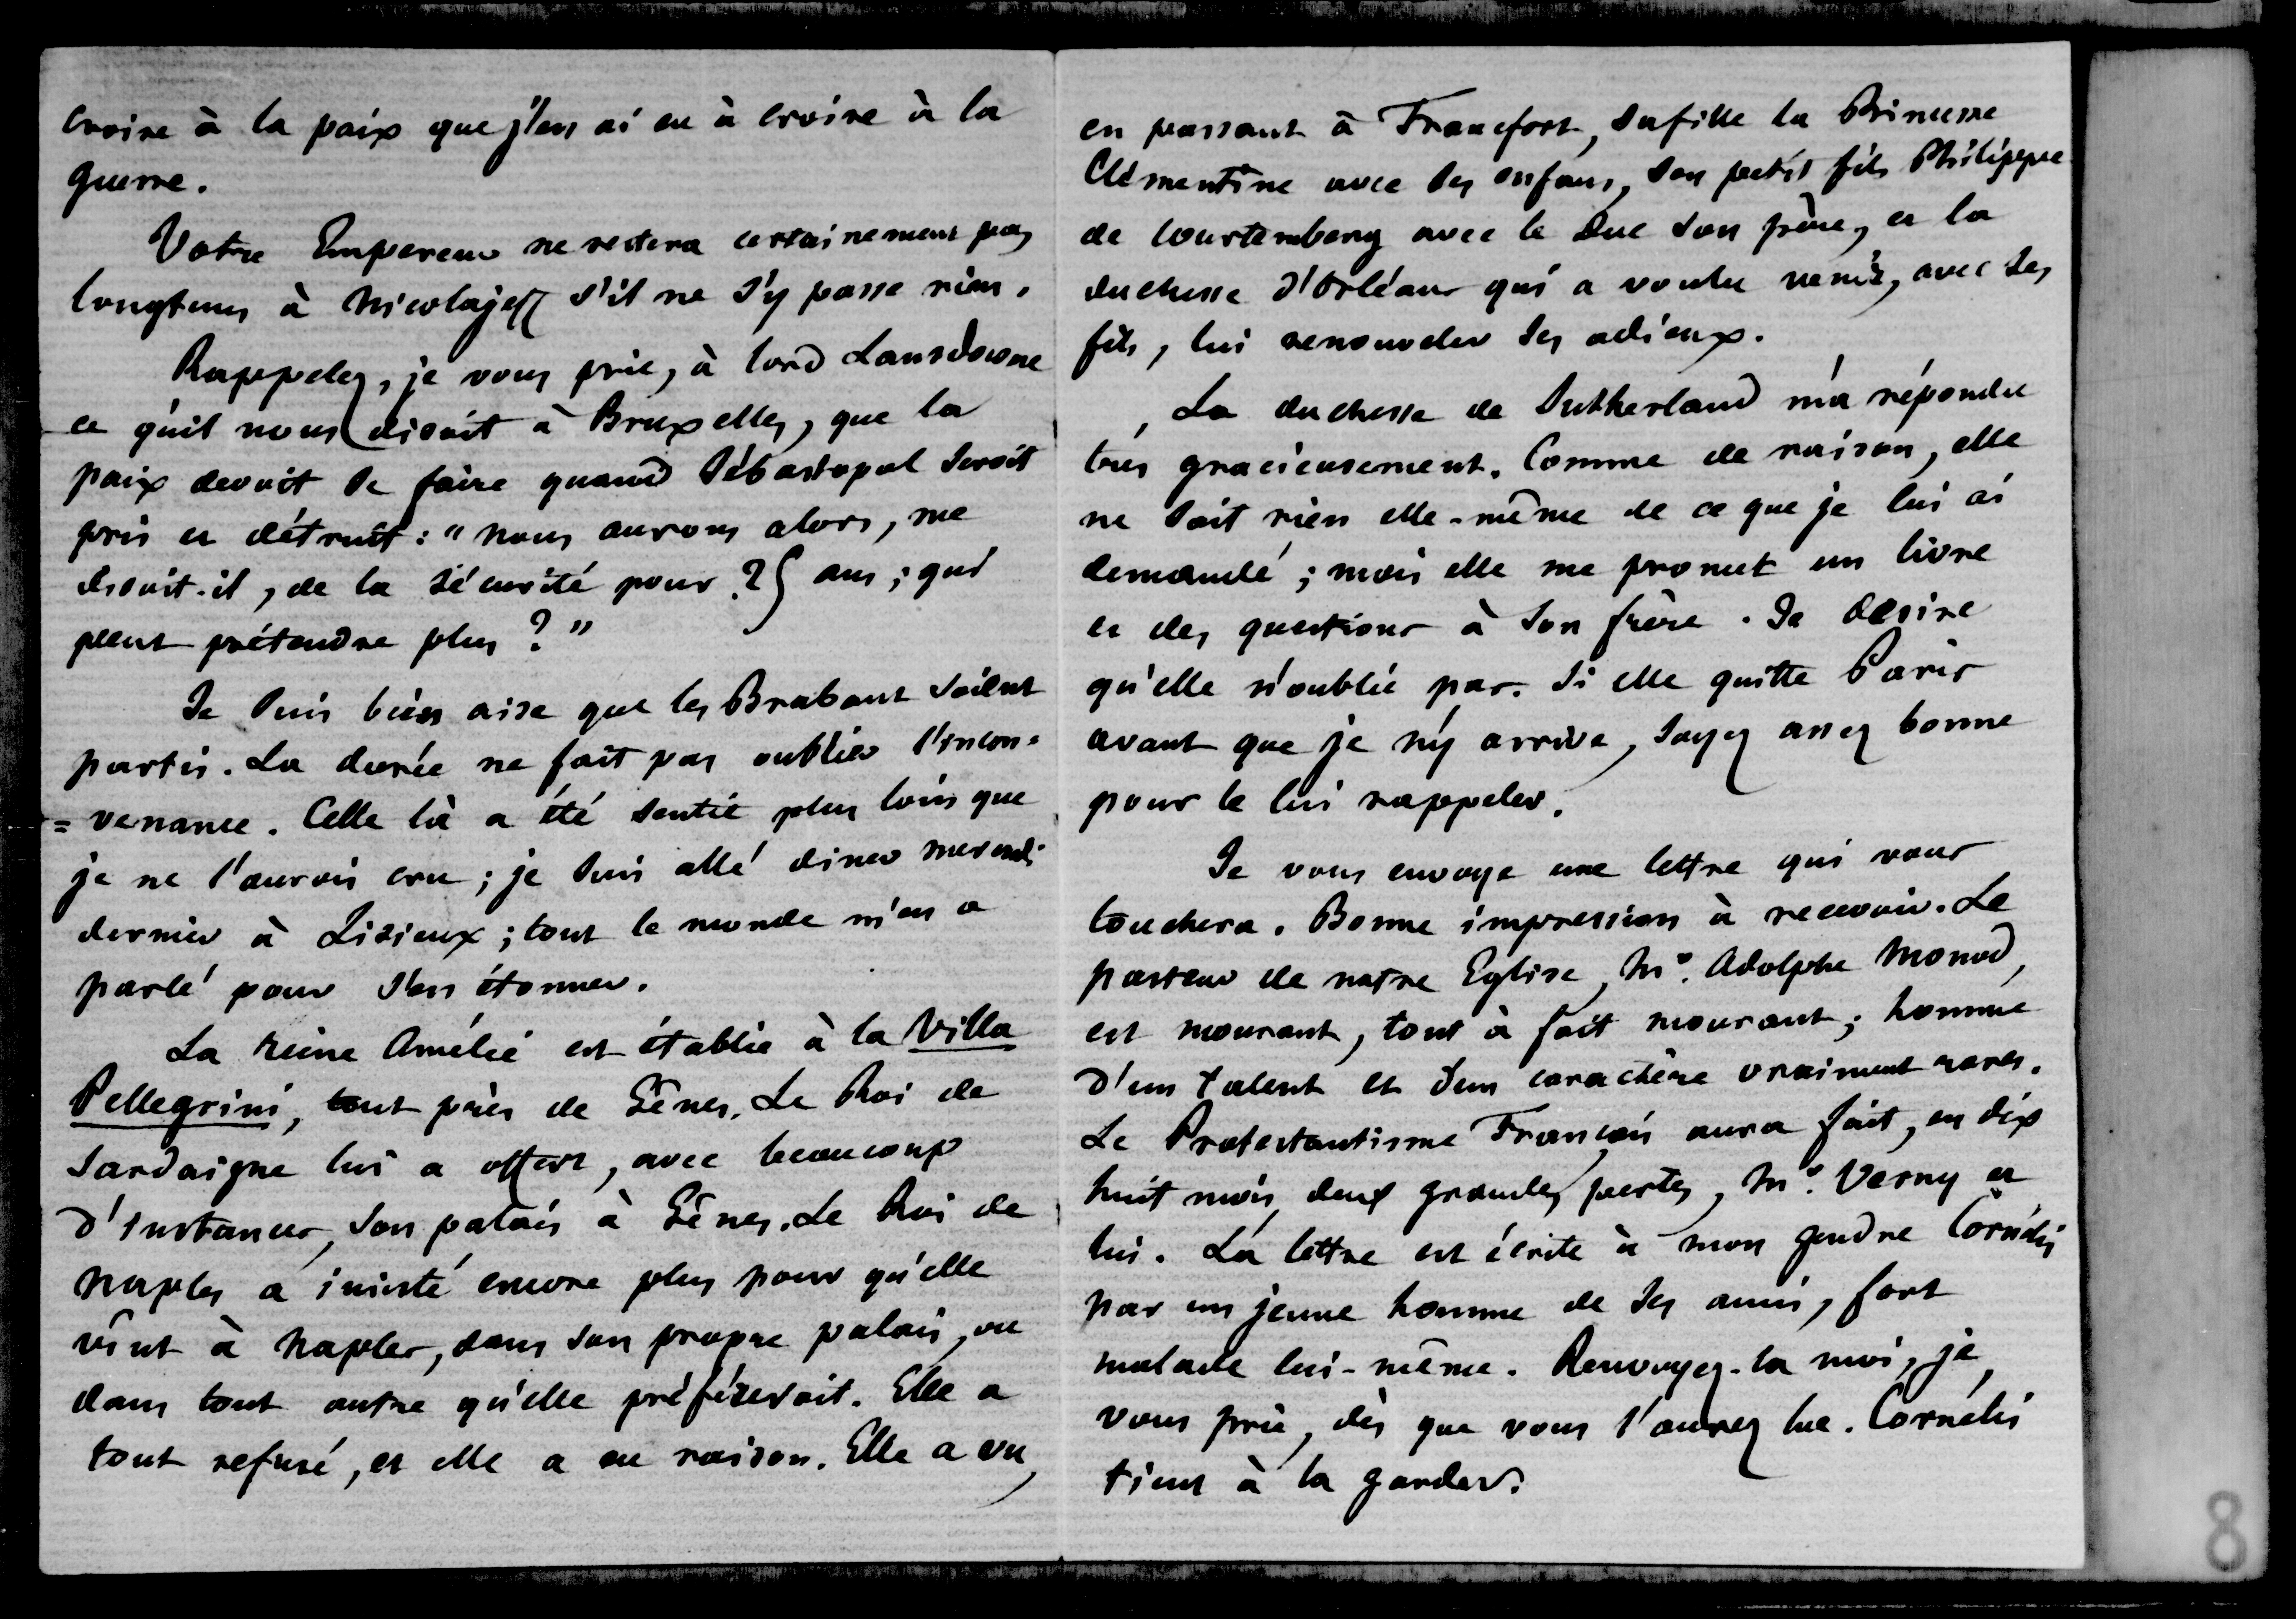 croire à la paix que j'en ai eu à croire à la
guerre.
Votre Empereur ne restera certainement pas
longtems à Nicolajeff s'il ne s'y passe rien.
Rappelez, je vous prie, à lord Lansdowne
ce qu'il nous disoit à Bruxelles, que la
paix devoit se faire quand Sébastopol seroit
pris et détruit : "nous aurons alors, me
disoit-il, de la sécurité pour 25 ans ; qui
peut prétendre plus ? "
Je suis bien aise que les Brabant soient
partis. La durée ne fait pas oublier l'incon=
=venance. Celle là a été sentie plus loin que
je ne l'aurois cru ; je suis allé diner mercredi
dernier à Lisieux ; tout le monde m'en a
parlé pour s'en étonner.
La Reine Amélie est établie à la Villa
Pellegrini, tout près de Gênes. Le Roi de
Sardaigne lui a offert, avec beaucoup
d'instances, son palais à Gênes. Le Roi de
Naples a insisté encore plus pour qu'elle
vint à Naples, dans son propre palais, ou
dans tout autre qu'elle préféreroit. Elle a
tout refusé, et elle a eu raison. Elle a vu,
en passant à Francfort, sa fille la Princesse
Clémentine avec ses enfans, son petit fils Philippe
de Wurtemberg avec le Duc son père, et la
duchesse d'Orléans qui a voulu venir, avec ses
fils, lui renouveler ses adieux.
La duchesse de Sutherland m'a répondu
très gracieusement. Comme de raison, elle
ne sait rien elle-même de ce que je lui ai
demandé ; mais elle me promet un livre
et des questions à son frère. Je désire
qu'elle n'oublie pas. Si elle quitte Paris
avant que je n'y arrive, soyez assez bonne
pour le lui rappeler.
Je vous envoye une lettre qui vous
touchera. Bonne impression à recevoir. Le
pasteur de notre Eglise, Mr. Adolphe Monod,
est mourant, tout à fait mourant ; homme
d'un talent et d'un caractère vraiment rares.
Le Protestantisme Français aura fait, en dix
huit mois, deux grandes pertes, Mr. Verny et
lui. La lettre est écrite à mon gendre Cornélis
par un jeune homme de ses amis, fort
malade lui-même. Renvoyez-la moi, je
vous prie, dès que vous l'aurez lue. Cornélis
tient à la garder.
8